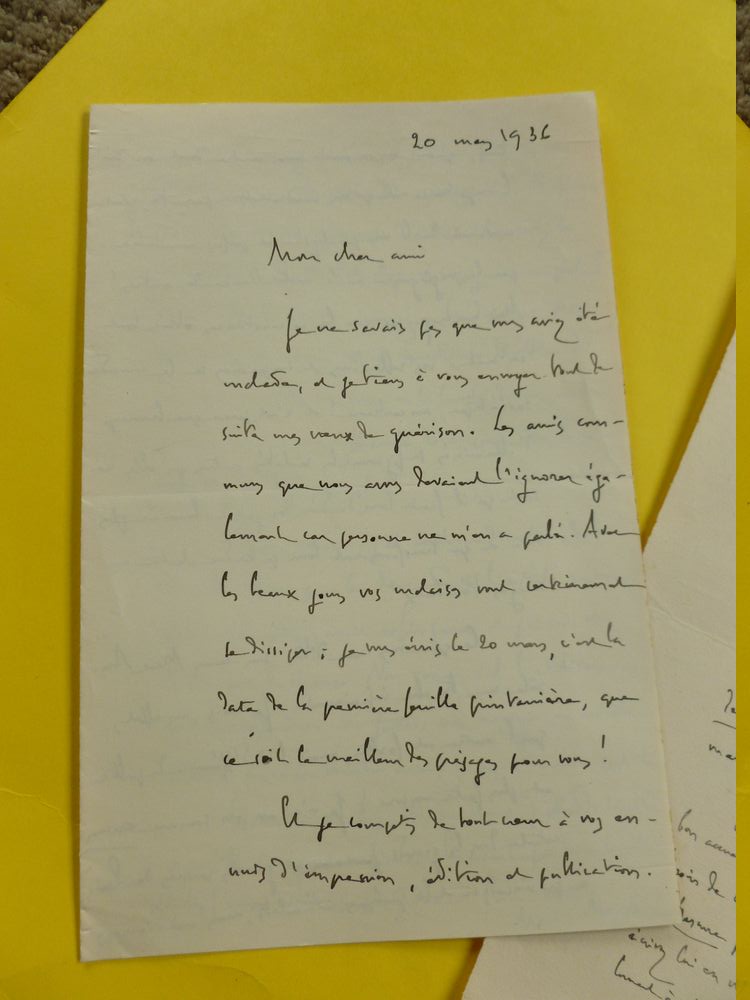 20 mars 1936
Mon cher ami
Je ne savais pas que vous aviez été
malade, et je tiens à vous envoyer tout de
suite mes vœux de guérison. Les amis com-
muns que nous avons devaient l'ignorer éga-
lement car personne ne m'en a parlé. Avec
les beaux jours vos malaises vont certainement
se dissiper ; je vous écris le 20 mars, c'est la
date de la première feuille printanière, que
ce soit le meilleur des présages pour vous !
à vos en-
nuis d'impression, édition et publication.
bon
de
écrivez lui